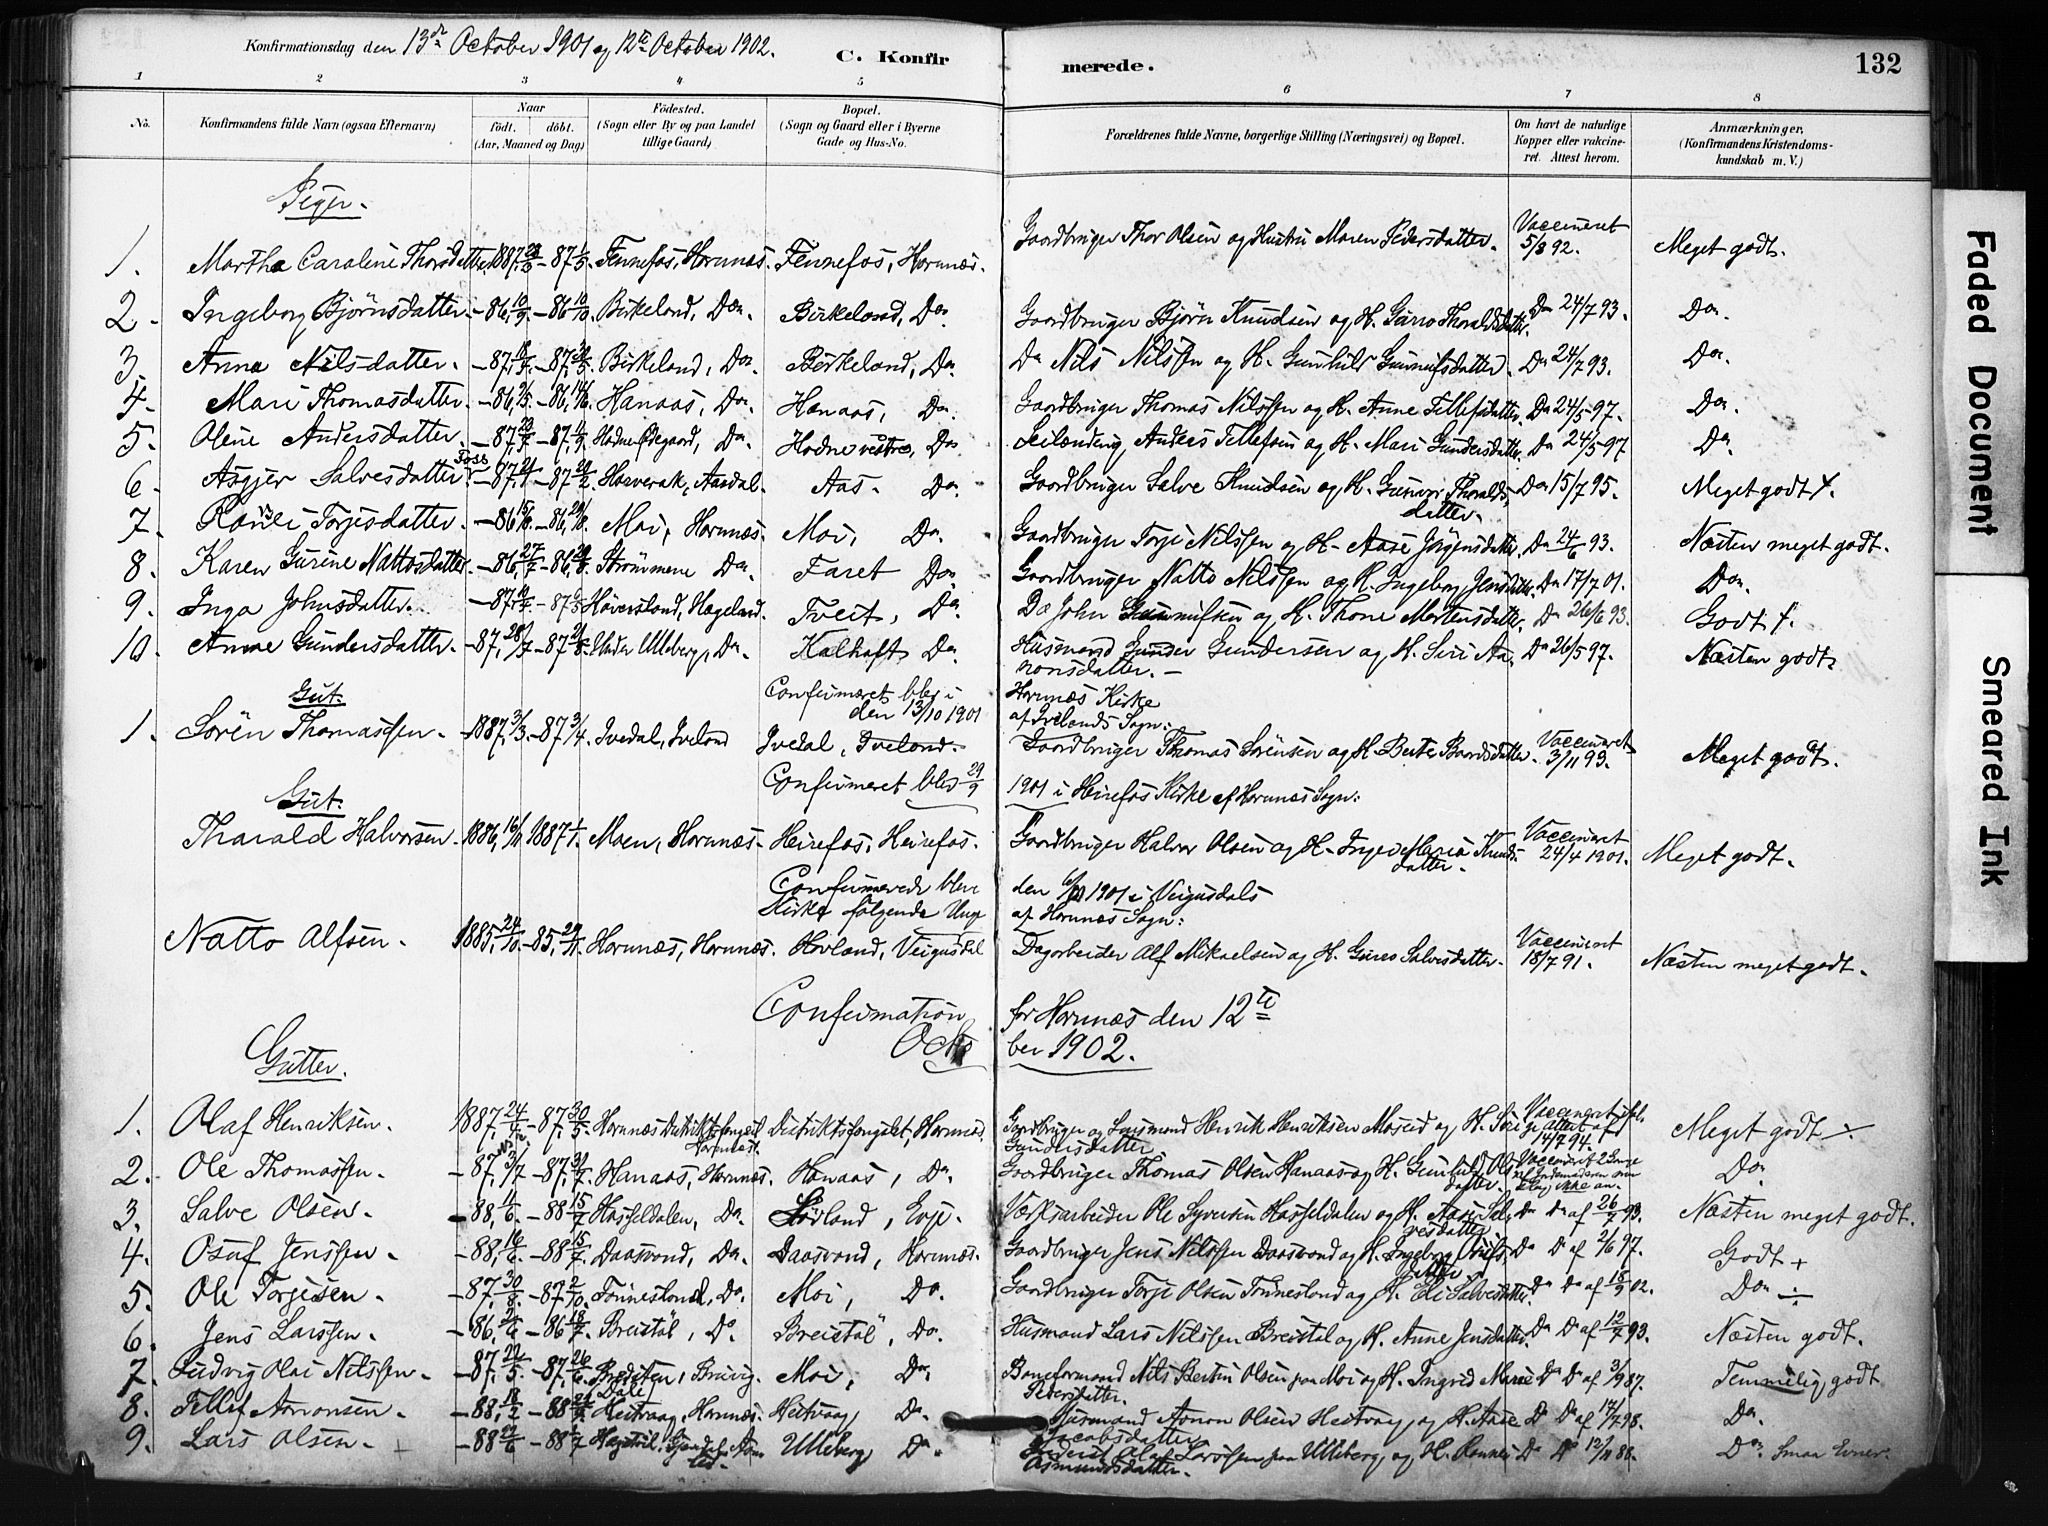 Konfirmationsdag den 13de October 1901 og 12te October 1902.
C. Konfirmerede.
132
1 2 3 4 5 6 7 8
No. Konfirmandens fulde Navn (ogsaa Efternavn) Naar født. døbt. (Aar, Maaned og Dag) Födested. (Sogn eller By og paa Landet tillige Gaard) Bopæl. (Sogn og Gaard eller i Byerne Gade og Hus-No. Forældrenes fulde Navne, borgerlige Stilling (Næringsvei) og Bopæl. Om havt de naturlige Kopper eller vakcineret. Attest herom. Anmærkninger, (Konfirmandens Kristendomskundskab m. V.)
Piger.
1. Martha Caroline Thorsdatter 1887, - 87, 1/5 Fennefos, Hornnæs. Fennefos, Hornnæs. Gaardbruger Thor Olsen og Hustru Maren Pedersdatter. Vaccineret 5/8 92. Meget godt.
2. Ingeborg Bjørnsdatter. - 86, 10/9 - 86 10/10 Birkeland, Do. Birkeland, Do. Gaardbruger Bjørn Knudsen og H. Guro Thoraldsdatter. Do 24/7 93. Do.
3. Anna Nilsdatter. - 87, - 87, Birkeland, Do. Birkeland, Do. Do Nils Nilssen og H. Gunhild Gunnufsdatter. Do 24/7 93. Do.
4. Mari Thomasdatter. - 86, - 86, 14/6 Hanaas, Do. Hanaas, Do. Gaardbruger Thomas Nilssen og H. Anne Tellefsdatter. Do 24/5 97. Do.
5. Olene Andersdatter. - 87, - 87, Hodne Ødegaard, Do. Hodne vestre, Do. Leilænding Anders Tellefsen og H. Mari Gundersdatter. Do 24/5 97 Do.
6. Asgjer Salvesdatter - 87, 21/1 - 87, Horverak, Aardal. Aas. Do. Gaardbruger Salve Knudsen og H. Gunvor Thoraldsdatter. Do 15/7 95. Meget godt +.
7. Torjisdatter. - 86, - 86, Moi, Hornnæs. Moi, Do. Gaardbruger Torje Nilssen og H. Aase Jørgensdatter. Do 24/6 93. Næsten meget godt.
8. Karen Gurine Nattosdatter. - 86, 27/7 - 86, Strømmene Do. Faret Do. Gaardbruger Natto Nilssen og H. Ingeborg Jensdatter. Do 17/7 01. Do.
9. Inga Johnsdatter. - 87, - 87, Høversland, Hægeland. Tveit, Do. Do John Gunnufsen og H. Thone Mortensdatter. Do 26/6 93. Godt +.
10. Anne Gundersdatter - 87, 28/7 - 87 21/8 Under Ulleberg, Do. Kalhaft, Do. Husmand Gunder Gundersen og H. Siri Aanonsdatter. Do 26/5 97. Næsten godt.
Confirmeret blev i Hornnæs Kirke
den 13/10 1901 af Ivelands Sogn:
Gut.
1. Sörén Thomassen. 1887, 3/3 - 87 3/4 Ivedal, Iveland Ivedal, Iveland. Gaardbruger Thomas Sørensen og H. Berte Baardsdatter. Vaccineret 3/11 93. Meget godt.
Confirmeret blev 29/9 1901 i Heirefos Kirke af Hornnæs Sogn:
Gut.
Tharald Halvorsen. 1886, 16/11 1887 1/1 Moen, Hornnæs. Heirefos, Heirefos. Gaardbruger Halvor Olsen og H. Inger Maria Knudsdatter. Vaccineret 24/4 1901. Meget godt.
Confirmerede blev den 6/10 1901 i Veigusdals
Kirke følgende Unge af Hornnæs Sogn:
Natto Alfsen. 1885, 24/10 - 85, 29/11 Hornnæs, Hornnæs. Hovland, Veigusdal Dagarbeider Alf Mikaelsen og H. Guro Salvesdatter. Vaccineret 18/7 91. Næsten meget godt.
Confirmation for Hornnæs den 12te
October 1902.
Gutter.
1. Olaf Henriksen. 1887, 24/4 - 87, 30/5 Hornnæs Distriktsfængsel Hornnæs. Distriktsfængslet, Hornnæs. Gaardbruger og Henrik Henriksen Moseid og H. Siri Gundersdatter. Vaccineret ifølge attest af 14/7 94. Meget godt
2. Ole Thomassen. - 87, 3/7 - 87, 31/7 Hanaas, Hornnæs. Hanaas, Do. Gaardbruger Thomas Olsen Hanaas og H. Gunhild Olsdatter. Vaccineret 2 Gange Do.
3. Salve Olsen. - 88, - 88 15/7 Hasseldalen, Do. Sørland, Evje. Ole Syversen Hasseldalen og H. Aase Salvesdatter Do Do af 26/7 93. Næsten meget godt.
4. Osuf Jenssen - 88, 16/6 - 88 15/7 Daasvand, Do. Daasvand, Hornnæs. Gaardbruger Jens Nilssen Daasvand og H. Ingeborg Do Do af 2/6 97. Godt +
5. Ole Torjesen. - 87, 30/8 - 87 2/10 Tønnesland, Do. Moi, Do. Gaardbruger Torje Olsen Tønnesland og H. Eli Salvesdatter. Do Do af 18/9 02. Do.
6. Jens Larssen. - 86, - 86 18/7 Breistöl, Do Breistöl, Do. Husmand Lars Nilssen Breistøl og H. Anne Jensdatter. Do Do af 12/7 93. Næsten godt.
7. Ludvig Olai Nilssen. - 87, 22/5 - 87, 26/6 Moi, Do. Banеformand Nils Bertin Olsen paa Moi og H. Ingrid Marie Pedersdatter. Do Do af 3/9 87. Temmelig godt
8. Tellef Aanonsen. - 88, 18/2 - 88 Heitvaag, Hornnæs. Heitvaag, Do. Husmand Aanon Olsen Heitvaag, og H. Aase Jacobsdatter Do Do af 17/7 98. Do.
9. Lars Olsen. - 88 - 88 Ulleberg Do. Larssen paa Ulleberg, og H. Asmundsdatter. Do Do 12/11 88. Do. Smaa Evner.
Faded Document
Smeared Ink